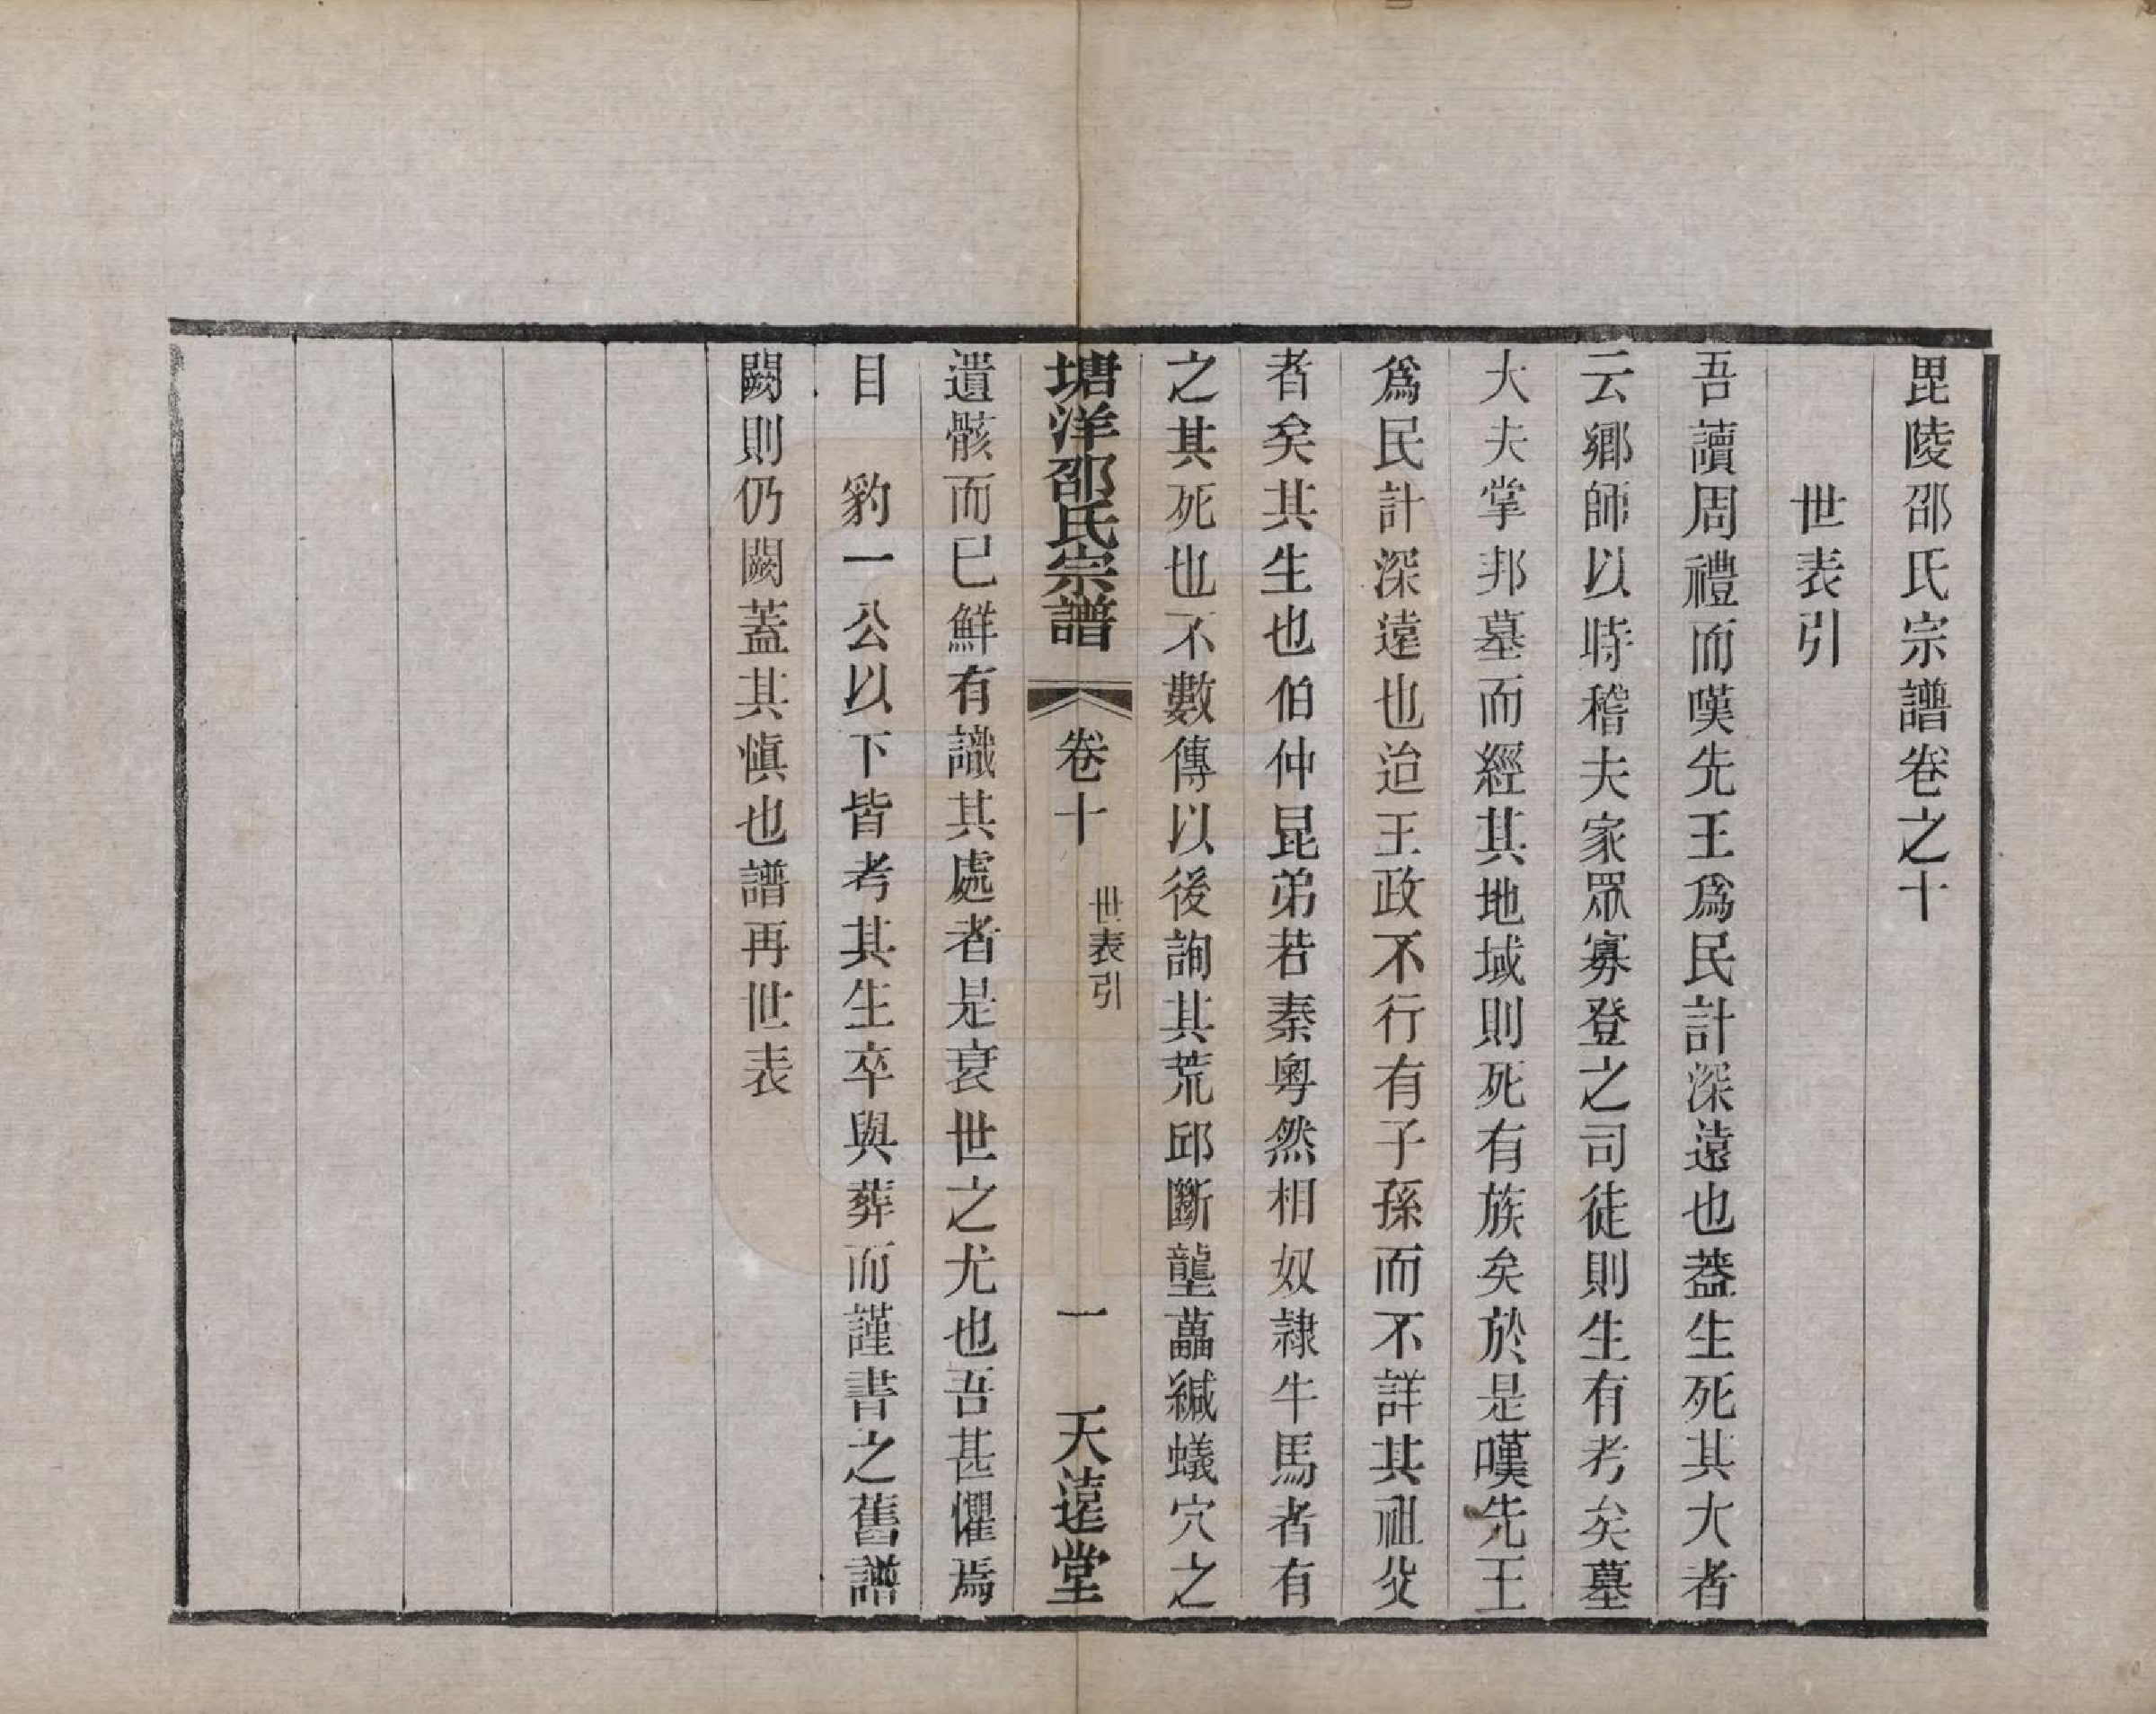 毘陵邵氏宗譜卷之十
世表引
吾讀周禮而嘆先王爲民計深遠也葢生死其大者
云鄉師以時稽夫家眾寡登之司徒則生有考矣墓
大夫掌邦墓而經其地域則死有族矣於是嘆先王
爲民計深遠也迨王政不行有子孫而不詳其祖父
者矣其生也伯仲昆弟若秦粵然相奴隷牛馬者有
之其死也不數傳以後詢其荒邱斷壟蔂緘蟻穴之
塘洋邵氏宗譜 卷十 世表引 一 天遠堂
遺骸而已鮮有識其處者是衰世之尤也吾甚懼焉
目 豹一公以下皆考其生卒與葬而謹書之舊譜
闕則仍闕蓋其愼也譜再世表